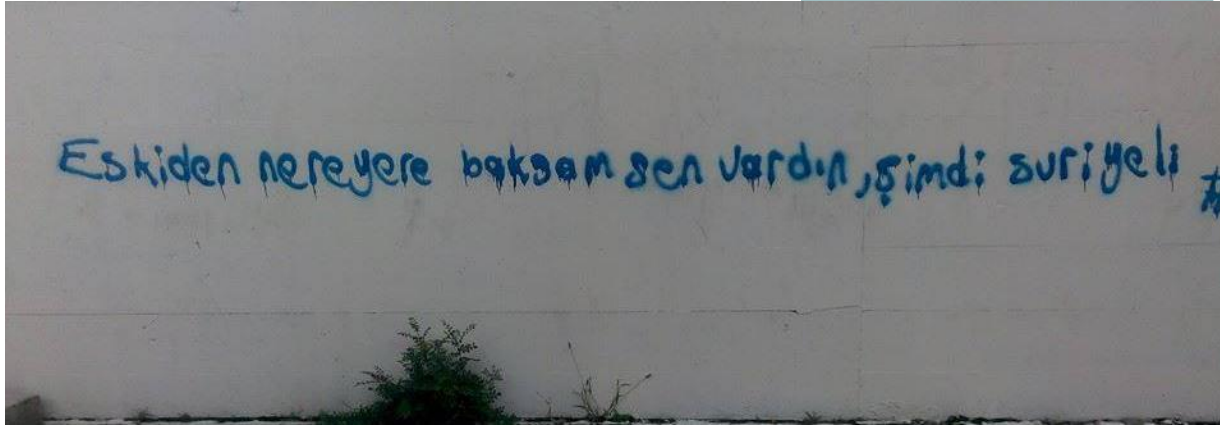 Eskiden nereyere baksam sen vardın, şimdi suriyeli #